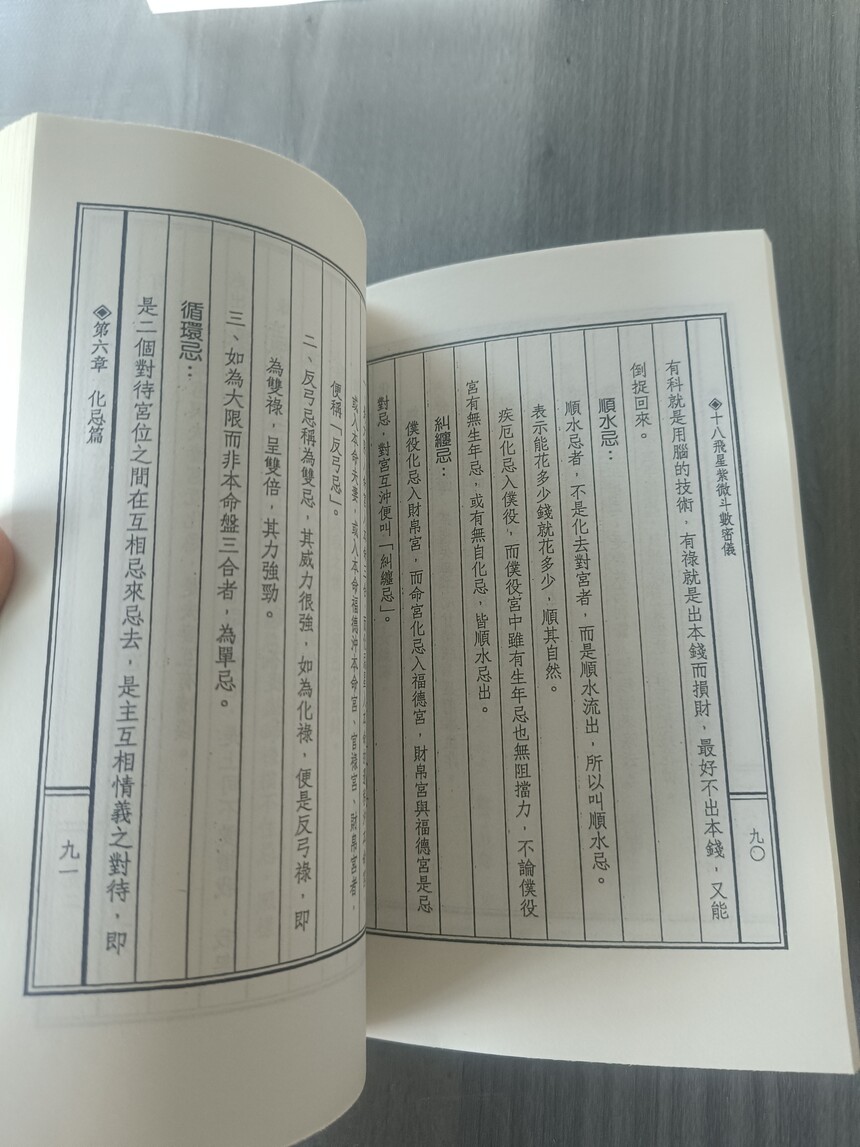 ◈十八飛星紫微斗數密儀
九〇
有科就是用腦的技術，有祿就是出本錢而損財，最好不出本錢，又能
倒捉回來。
順水忌：
順水忌者，不是化去對宮者，而是順水流出，所以叫順水忌。
表示能花多少錢就花多少，順其自然。
疾厄化忌入僕役，而僕役宮中雖有生年忌也無阻擋力，不論僕役
宮有無生年忌，或有無自化忌，皆順水忌出。
糾纏忌：
僕役化忌入財帛宮，而命宮化忌入福德宮，財帛宮與福德宮是忌
對忌，對宮互沖便叫「糾纏忌」。
或入本命夫妻，或入本命福德沖本命宮、官祿宮、財帛宮者，
便稱「反弓忌」。
二、反弓忌稱為雙忌，其威力很強，如為化祿，便是反弓祿，即
為雙祿，呈雙倍，其力強勁。
三、如為大限而非本命盤三合者，為單忌。
循環忌：
是二個對待宮位之間在互相忌來忌去，是主互相情義之對待，即
◈第六章　化忌篇
九一